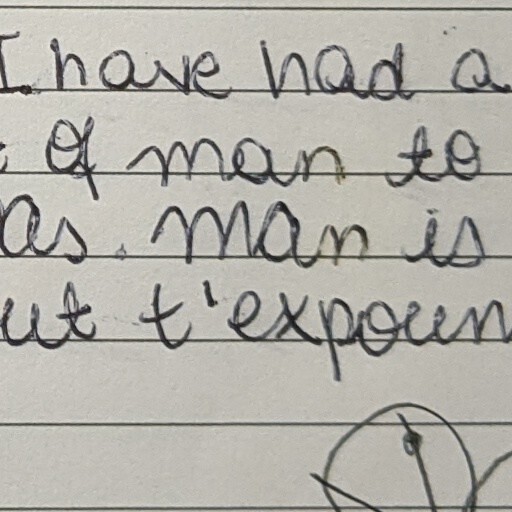 I have had a
of man to
as. man is
ut t'expoun